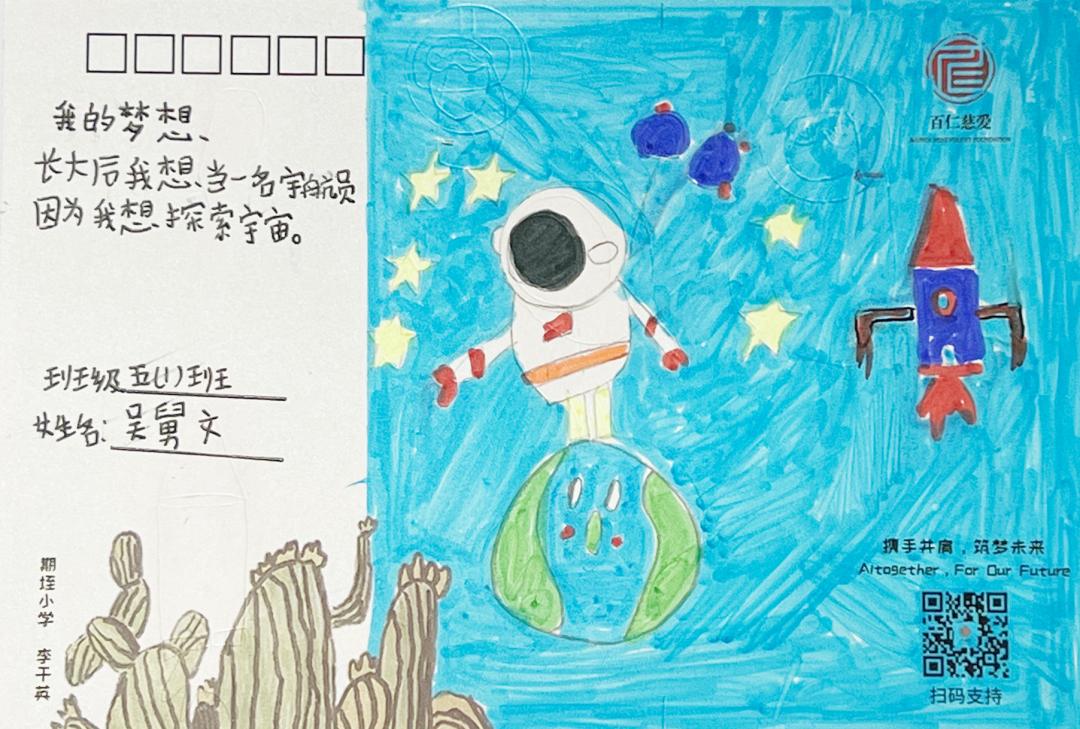 我的梦想、
长大后我想当一名宇航员
因为我想探索宇宙。
班级 五(1)班
姓名: 吴舅文
期垤小学 李干英
百仁慈爱
携手并肩，筑梦未来
Altogether, For Our Future
扫码支持